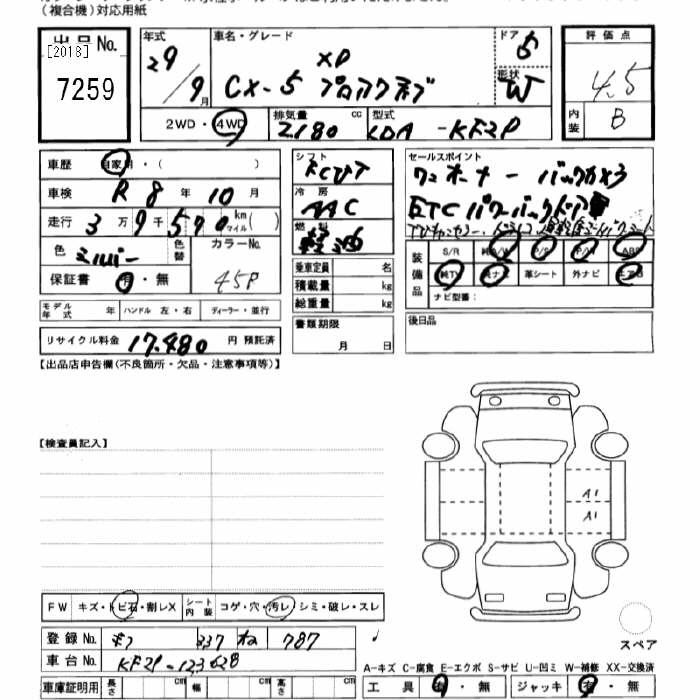 （複合機）対応用紙
出品No.
[2018]
7259
年式
29年
9月
車名・グレード
XD
CX-5 プロアクティブ
ドア
5
形状
W
評価点
4.5
内装
B
2WD・4WD
排気量
2180 cc
型式
LDA-KF2P
車歴 自家用・（ ）
車検 R8年10月
走行 3万9千590km マイル（ ）
色 シルバー
色替
カラーNo.
45P
保証書 有・無
モデル年式 年 ハンドル 左・右 ディーラー・並行
リサイクル料金 17,480 円 預託済
シフト
FCVT
冷房
AAC
燃料
軽油
乗車定員 名
積載量 kg
総重量 kg
書類期限
月 日
セールスポイント
ワンオーナー バックカメラ
ETC パワーバックドア
装備品
S/R
P/S
P/W
ABS
純TV
純ナビ
革シート
外ナビ
エアB
ナビ型番：
後日品
【出品店申告欄（不良箇所・欠品・注意事項等）】
【検査員記入】
A1
A1
FW キズ・トビ石・割レX
シート内装 コゲ・穴・汚レ・シミ・破レ・スレ
登録No. 337 ね 787
車台No. KF2P-123628
車庫証明用 長さ cm 幅 cm 高さ cm
スペア
A-キズ C-腐食 E-エクボ S-サビ U-凹ミ W-補修 XX-交換済
工具 有・無 ジャッキ 有・無